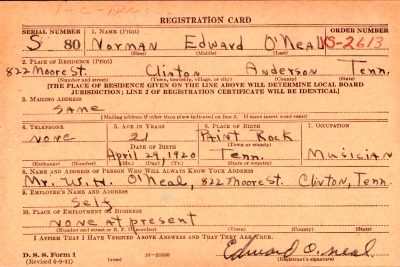 REGISTRATION CARD
SERIAL NUMBER 1. NAME (Print) ORDER NUMBER
S 80 Norman Edward O'Neal VS-2613
(First) (Middle) (Last)
2. PLACE OF RESIDENCE (Print)
822 Moore St. Clinton Anderson Tenn.
(Number and street) (Town, township, village, or city) (County) (State)
[THE PLACE OF RESIDENCE GIVEN ON THE LINE ABOVE WILL DETERMINE LOCAL BOARD
JURISDICTION; LINE 2 OF REGISTRATION CERTIFICATE WILL BE IDENTICAL]
3. MAILING ADDRESS
Same
[Mailing address if other than place indicated on line 2. If same insert word same]
4. TELEPHONE 5. AGE IN YEARS 6. PLACE OF BIRTH 7. OCCUPATION
none 21 Paint Rock
DATE OF BIRTH (Town or county)
April 29, 1920 Tenn. Musician
(Exchange) (Number) (Mo.) (Day) (Yr.) (State or country)
8. NAME AND ADDRESS OF PERSON WHO WILL ALWAYS KNOW YOUR ADDRESS
Mr. W. H. O'Neal, 822 Moore St. Clinton, Tenn.
9. EMPLOYER'S NAME AND ADDRESS
Self
10. PLACE OF EMPLOYMENT OR BUSINESS
none at present
(Number and street or R. F. D. number) (Town) (County) (State)
I AFFIRM THAT I HAVE VERIFIED ABOVE ANSWERS AND THAT THEY ARE TRUE.
Edward O. neal
D. S. S. Form 1
(Revised 6-9-41) (over) 16—21630 (Registrant's signature)